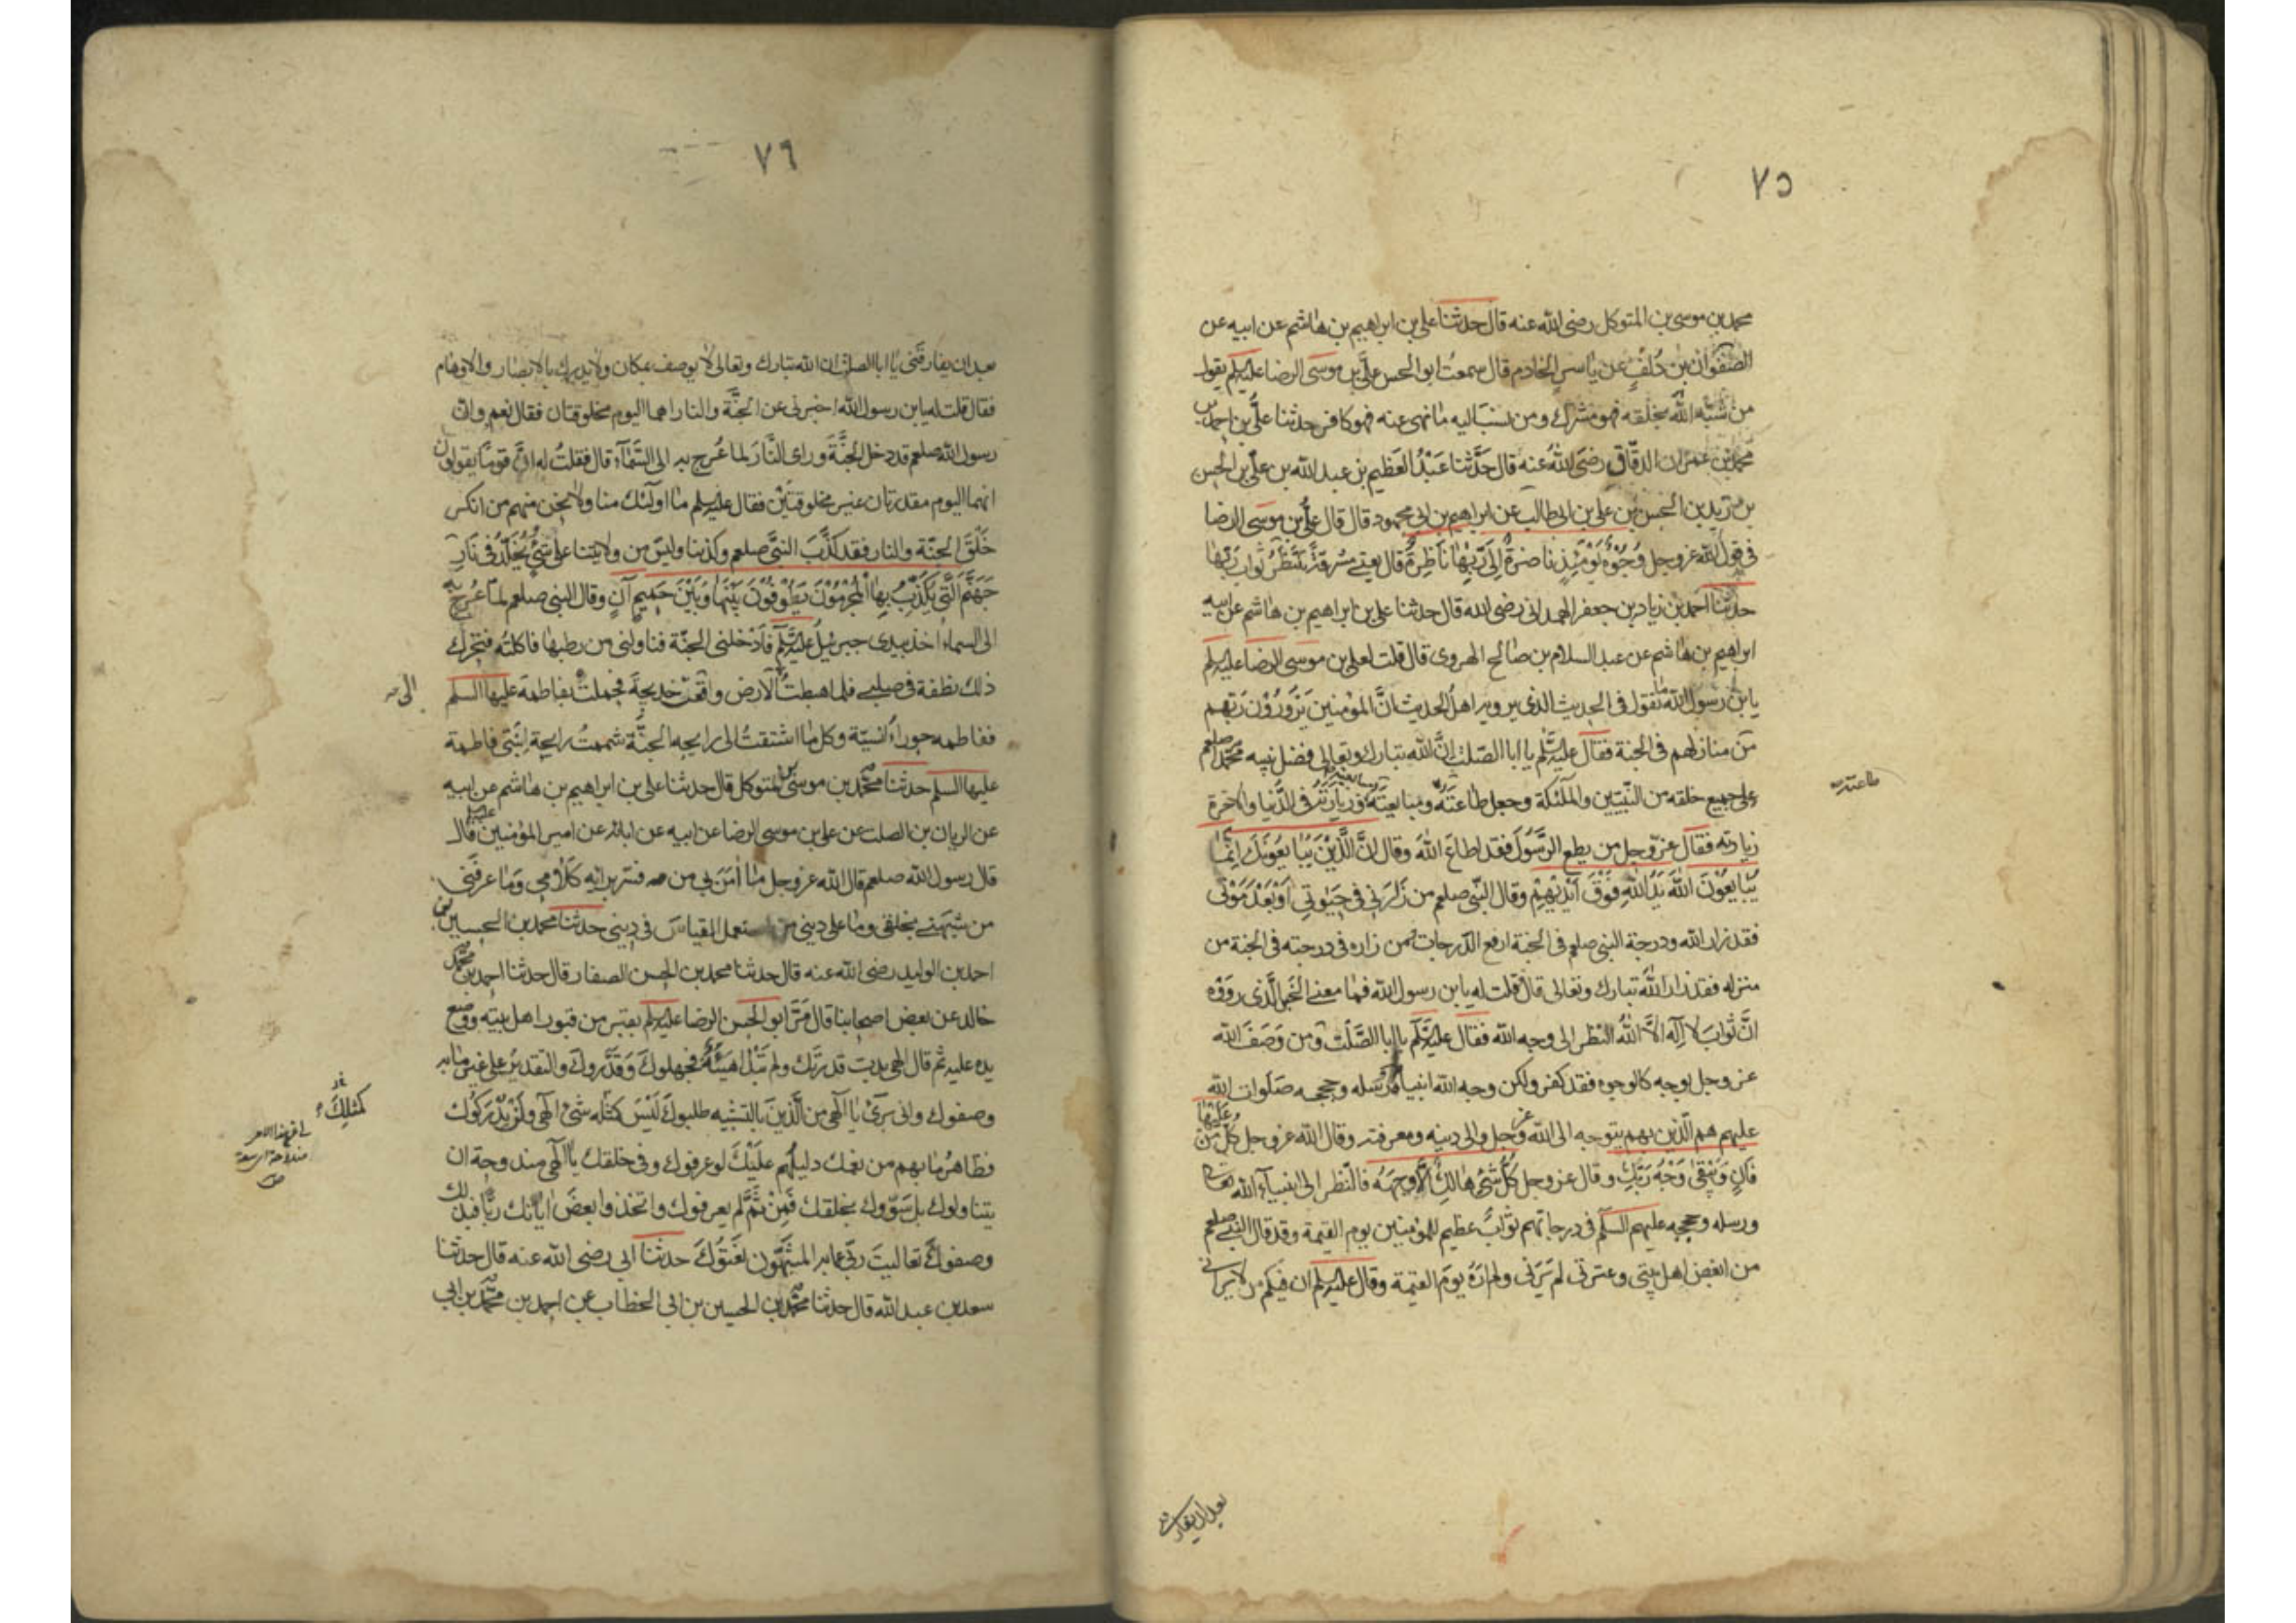 ٧٥
محمد بن موسى بن المتوكل رضى الله عنه قال حدثنا على بن ابراهيم بن هاشم عن ابيه عن
الصَّقْوان بن دُلفٍ عن ياسر الخادم قال سمعتُ ابو الحسن علىَّ بن موسَى الرضا عليه السلم يقول
من شبَّه اللهَ بخلقه فهو مشرك ومن نسب اليه ما نهى عنه فهو كافر حدثنا علىُّ بن احمد بن
محمد بن عمران الدقّاق رضىَ اللهُ عنه قال حدَّثنا عبْدُ العَظيم بن عبد الله بن على بن الحسن
بن زيد بن الحسن بن على بن ابى طالب عن ابراهيم بن ابى محمود قال قال علىُّ بن موسَى الرضا
فى قول الله عز وجل وُجُوْهٌ يَوْمَئِذٍ ناضرةٌ اِلَى رَبِّهَا نَاظِرةٌ قال يعنى مشرقةٌ تنتظرُ ثواب ربّها
حدثنا احمد بن زياد بن جعفر الهمدانى رضى الله قال حدثنا على بن ابراهيم بن هاشم عن ابيه
ابراهيم بن هاشم عن عبد السلام بن صالح الهروى قال قلت لعلى بن موسى الرضا عليه السلم
يابن رسول الله ما تقول فى الحديث الذى يرويه اهلُ الحديث انَّ المؤمنين يَزُورُوْن رَبّهم
من منازلهم فى الجنة فقال عليه السَّلم يا ابا الصّلت انَّ الله تبارك وتعالى فضل نبيه محمّداً صلعم
على جميع خلقه من النَّبيّين والملئكة وجعل طاعتَهُ ومتابعتَهُ وَزيارتَهُ فى الدُّنيا والاخرة
طاعته
زيارته فقال عزّ وجل من يطع الرَّسُولَ فقد اطاعَ اللهَ وقال انَّ الَّذِيْنَ يُبَايعُوْنَكَ اِنَّمَا
يُبَايعُوْنَ اللهَ يَدُ اللهِ فَوْقَ اَيْدِيْهِمْ وقال النّبى صلعم من زَارَنِى فى حَيٰوتِى اَوْ بَعْدَ مَوْتى
فقد زار الله ودرجة النبى صلعم فى الجنة ارفع الدّرجات فمن زاره فى درجته فى الجنة من
منزله فقد زار اللهَ تبارك وتعالى قال قلت له يا بن رسول الله فما معنى الخبر الَّذى روَوْه
انَّ ثوابَ لا اِلٰه الاَّ اللهُ النظر الى وجه الله فقال عليه السَّلم يا ابا الصَّلْت وَمن وَصَفَ الله
عز وجل بوجه كالوجوه فقد كفر ولكن وجه الله انبياؤه ورُسله وحججه صَلَوات الله
عليهم هم الّذين بهم يتوجه الى الله عز وجل والى دينه ومعرفته وقال الله عز وجل كُلُّ مَنْ عَلَيْهَا
فَانٍ وَيَبْقىٰ وَجْهُ رَبِّكَ وقال عز وجل كُلُّ شَىْءٍ هَالِكٌ اِلاَّ وَجْهَهُ فالنّظر الى انبيآء الله تعالى
ورسله وحججه عليهم السلم فى درجاتهم ثوابٌ عظيم للمؤمنين يوم القيمة وقد قال النبى صلعم
من ابغض اهل بيتى وعترتى لم يَرَنى ولم اَرَهُ يومَ القيمة وقال عليه السلم ان فيكم من لا يرانى
بعد ان يفارقنى
٧٦
بعد ان يفارقَنى يا ابا الصلت ان الله تبارك وتعالى لا يوصف بمكان ولا يدرك بالابصار والاوهام
فقال قلت له يابن رسول الله اخبرنى عن الجنَّة والنار اهما اليوم مخلوقتان فقال نعم وانّ
رسول الله صلعم قد دخل الجنَّةَ وراى النَّارَ لما عُرج به الى السَّمآء قال فقلتُ له انَّ قوماً يقولون
انهما اليوم مقدرتان غير مخلوقتيَنْ فقال عليه السلم ما اولٰئك منا ولا نحن منهم من انكر
خَلْقَ الجنّة والنار فقد كذَّبَ النبىَّ صلعم وكذبنا وليْسَ من ولايتنا على شَىْءٍ يُخَلَّدُ فى نَارِ
جَهَنَّمَ الَّتِى يُكَذِّبُ بِهَا الْمُجْرِمُوْنَ يَطُوْفُوْنَ بَيْنَهَا وَبَيْنَ حَمِيمٍ آنٍ وقال النبى صلعم لمّا عُرج بى
الى السماء اخذ بيدى جبرئيلُ عليه السَّلم فَاَدْخلنى الجنّة فناولنى من رطبها فاكلتُه فتحوّل
ذلك نطفة فى صلبى فلما اهبطتُ الارض واقعتُ خديجةَ فحملتْ بفاطمة عليها السلم
الى
ففاطمه حوراءُ انسيّة وكل ما اشتقتُ الى رايحه الجنَّة شممتُ رايحة اِبْنَتى فاطمة
عليها السلم حدثنا محمّد بن موسَى بن المتوكل قال حدثنا على بن ابراهيم بن هاشم عن ابيه
عن الريان بن الصلت عن على بن موسى الرضا عن ابيه عن ابائه عن امير المؤمنين عليه السلم قال
قال رسول الله صلعم قال الله عز وجل ما اٰمَنَ بى من فسّر برايه كَلَامِى وَمَا عرفَنى
من شبّهنى بخلقى وما على دينى من استعمل القياسَ فى دينى حدثنا محمد بن الحسين بن
احمد بن الوليد رضى الله عنه قال حدثنا محمد بن الحسن الصفار قال حدثنا احمد بن محمد
خالد عن بعض اصحابنا قال مَرَّ ابو الحسن الرضا عليه السلم بقبر من قبور اهل بيته ووضع
يده عليه ثم قال الهى بدت قدرتك ولم تَبْدُ هَيْئَةٌ فجهلوك وَقَدَّرُوكَ والتقدير على غير ما به
وصفوك وانى برىءٌ يا الٰهى من الَّذينَ بالتشبيه طلبوكَ لَيْسَ كمثله شىْءٌ الٰهى ولَنْ يُدْرَكُوك
كَمثلِكَ
فظاهرُ ما بهم من نعمك دليلُهم عَلَيْكَ لو عرفوك وفى خلقك يا الٰهى مندوحة ان
يتناولوك بل سَوَّوك بخلقك فَمِنْ ثَمَّ لم يعرفوك واتخذوا بعضَ اٰياتك ربًّا فبذلك
وصفوكَ تعاليتَ ربّى عما به المشبِّهُون نعَتُوْكَ حدثنا ابى رضى الله عنه قال حدثنا
سعد بن عبد الله قال حدثنا محمّد بن الحسين بن ابى الخطاب عن احمد بن محمَّد بن ابى